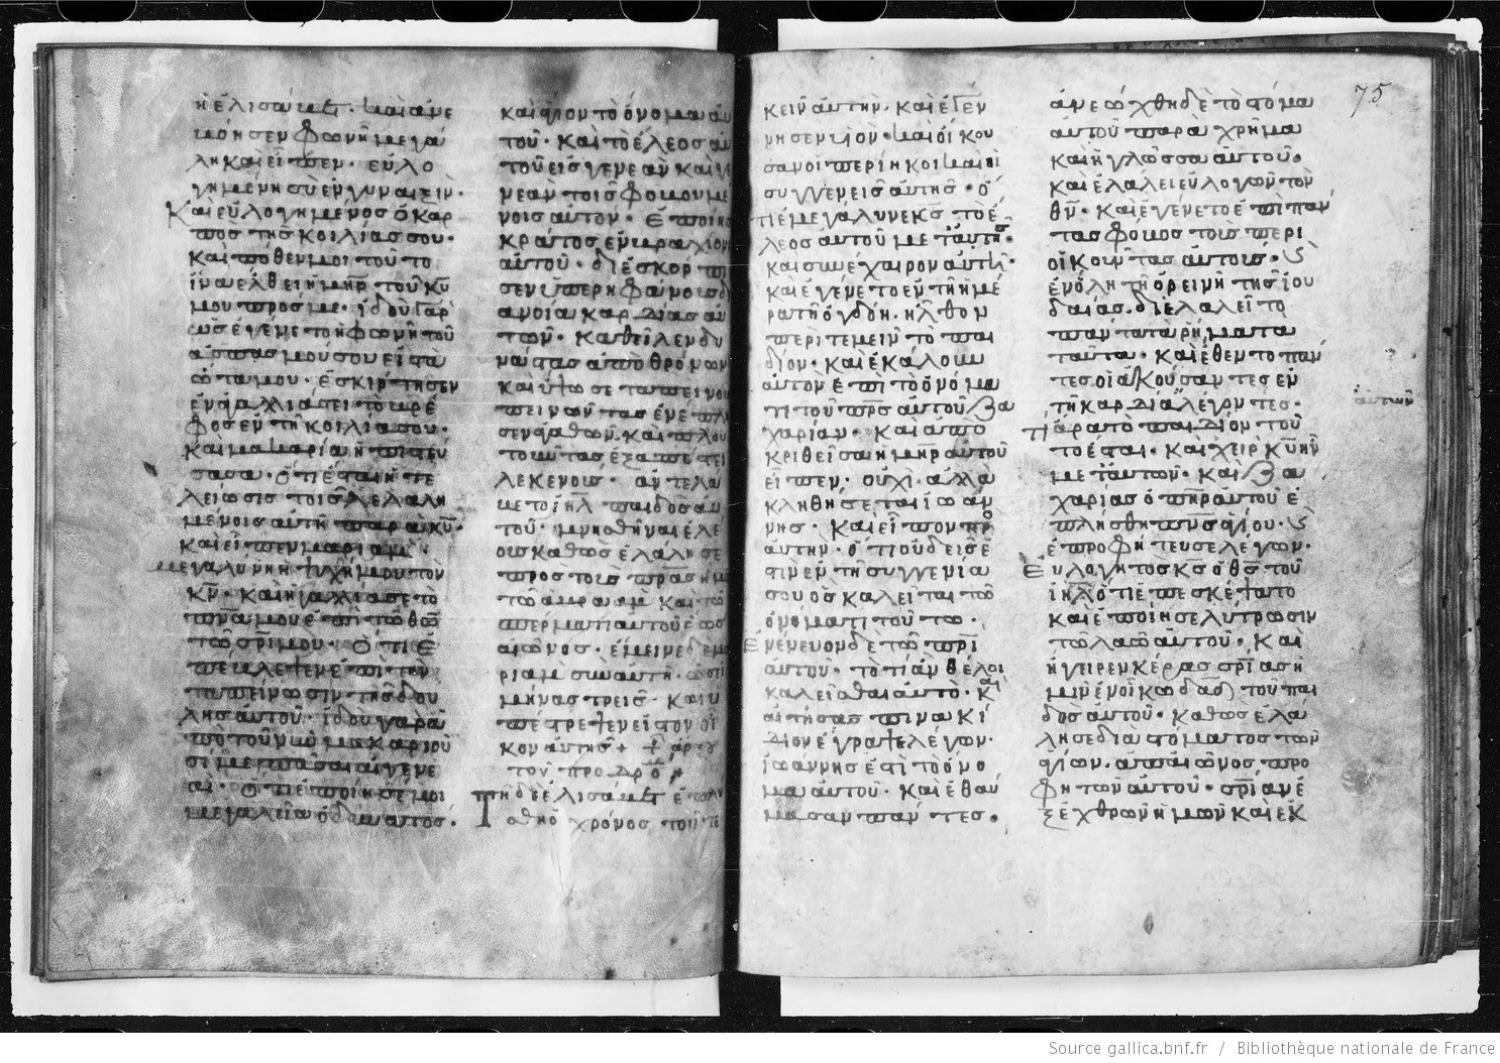 ἡ ἐλισάβετ· καὶ ἀνε
βόησεν φωνῇ μεγά
λη καὶ εἶπεν· εὐλο
γημένη σὺ ἐν γυναιξὶν·
Καὶ εὐλογημένος ὁ καρ
πὸς τῆς κοιλίας σου·
καὶ πόθεν μοι τοῦτο
ἵνα ἔλθει ἡ μηρ τοῦ κυ
μου πρός με· ἰδοὺ γὰρ
ὡς ἐγένετο ἡ φωνὴ τοῦ
ἀσπασμού σου εἰς τὰ
ὦτα μου· ἐσκίρτησεν
ἐν ἀγαλλιάσει τὸ βρέ
φος ἐν τῆ κοιλία μου·
καὶ μακαρία ἡ πιστεύ
σασα· ὅτι ἔσται ἡ τε
λείωσις τοῖς λελαλη
μένοις αὐτῆ παρὰ κυ·
καὶ εἶπεν μαριάμ·
μεγαλύνη ἡ ψυχή μου τὸν
κν· καὶ ἠγαλλίασε τὸ
πνα μου ἐπὶ τῶ θω
τῶ σρι μου· Ὅτι ἐ
πέβλεψεν ἐπὶ τὴν
ταπείνωσιν τῆς δού
λης αὐτοῦ· ἰδοὺ γὰρ ἀ
πὸ τοῦ νῦν μακαριοῦ
σί με πᾶσαι αἱ γενε
αί· Ὅτι ἐποίησέ μοι
μεγαλεῖα ὁ δυνατός·
καὶ ἅγιον τὸ ὄνομα αὐ
τοῦ· καὶ τὸ ἔλεος αὐ
τοῦ εἰς γενεὰν καὶ γε
νεὰν τοῖς φοβουμέ
νοις αὐτὸν· Ἐποίησε
κράτος ἐν βραχίονι
αὐτοῦ· διεσκόρπι
σεν ὑπερηφάνους δι
ανοία καρδίας αὐ
τῶν· Καθεῖλεν δυ
νάστας ἀπὸ θρόνων
καὶ ὕψωσε ταπεινοὺς
πεινῶντας ἐνέπλη
σεν ἀγαθῶν καὶ πλου
τοῦντας ἐξαπέστει
λε κενούς· ἀντελά
βετο ιηλ παιδὸς αὐ
τοῦ· μνησθῆναι ἐλέ
ους καθὼς ἐλάλησε
πρὸς τοὺς πρας ἡμ
τῶ ἀβραὰμ καὶ τῶ
σπέρματι αὐτοῦ ἕως
αἰῶνος· ἔμεινε δὲ μα
ριὰμ σὺν αὐτῆ· ὡσεὶ
μῆνας τρεῖς· καὶ ὑ
πέστρεψεν εἰς τὸν οἶ
κον αὐτῆς +
τοῦ προδρο
Τῆ δὲ ἐλισάβετ ἐπλή
σθη ὁ χρόνος τοῦ τε
75
κεῖν αὐτὴν· καὶ ἐγέν
νησεν υἱόν· καὶ οἱ κου
σαν οἱ περίηκοι καὶ οἱ
συγγενεῖς αὐτῆς· ὅ
τι ἐμεγάλυνε κς τὸ ἔ
λεος αὐτοῦ μετ' αὐτῆς·
καὶ συνέχαιρον αὐτῆ·
καὶ ἐγένετο ἐν τῆ ἡμέ
ρα τῆ ὀγδόη· ἦλθον
περιτεμεῖν τὸ παι
δίον· καὶ ἐκάλουν
αὐτὸν ἐπὶ τὸ ὄνομα
τι τοῦ πρς αὐτοῦ ζα
χαρίαν· Καὶ ἀπο
κριθεῖσα ἡ μηρ αὐτοῦ
εἶπεν· οὐχὶ· ἀλλὰ
κληθήσεται ἰωάν
νης· Καὶ εἶπον πρὸ
αὐτὴν· ὅτι οὐδείς ἐ
στιν ἐν τῆ συγγενία
σου ὃς καλεῖται τῶ
ὀνόματι τούτω·
Ἐνένευον δὲ τῶ πρι
αὐτοῦ· τὸ τί ἂν θέλοι
καλεῖσθαι αὐτὸ· Καὶ
αἰτήσας πινακί
διον ἔγραψε λέγων·
ἰωάννης ἐστὶ τὸ ὄνο
μα αὐτοῦ· Καὶ ἐθαύ
μασαν πάντες·
ἀνεώχθη δὲ τὸ στόμα
αὐτοῦ παρὰ χρῆμα
καὶ ἡ γλῶσσα αὐτοῦ·
καὶ ἐλάλει εὐλογῶν τὸν
θν· Καὶ ἐγένετο ἐπὶ πάν
τας φόβος τοὺς περι
οἰκοῦντας αὐτούς· Καὶ
ἐν ὅλη τῆ ὀρεινῆ τῆς ἰου
δαίας· διελαλεῖτο
πάντα τὰ ῥήματα
ταῦτα· Καὶ ἔθεντο πάν
τες οἱ ἀκούσαντες ἐν
τῆ καρδία λέγοντες·
αὐτῶν
Τί ἄρα τὸ παιδίον τοῦ
το ἔσται· Καὶ χεὶρ κυ ἦν
μετ' αὐτῶν· Καὶ ζα
χαρίας ὁ πηρ αὐτοῦ ἐ
πλήσθη πνς ἁγίου· Καὶ
ἐπροφήτευσε λέγων·
Εὐλογητὸς κς ὁ θς τοῦ
ιηλ ὅτι ἐπεσκέψατο
καὶ ἐποίησε λύτρωσιν
τῶ λαῶ αὐτοῦ· Καὶ
ἤγειρεν κέρας σρίας ἡ
μῖν ἐν οἴκω δαδ τοῦ παι
δὸς αὐτοῦ· καθὼς ἐλά
λησε διὰ στόματος τῶν
ἁγίων· ἀπ' αἰῶνος προ
φητῶν αὐτοῦ· σρίαν ἐ
ξ ἐχθρῶν ἡμῶν καὶ ἐκ
Source gallica.bnf.fr / Bibliothèque nationale de France